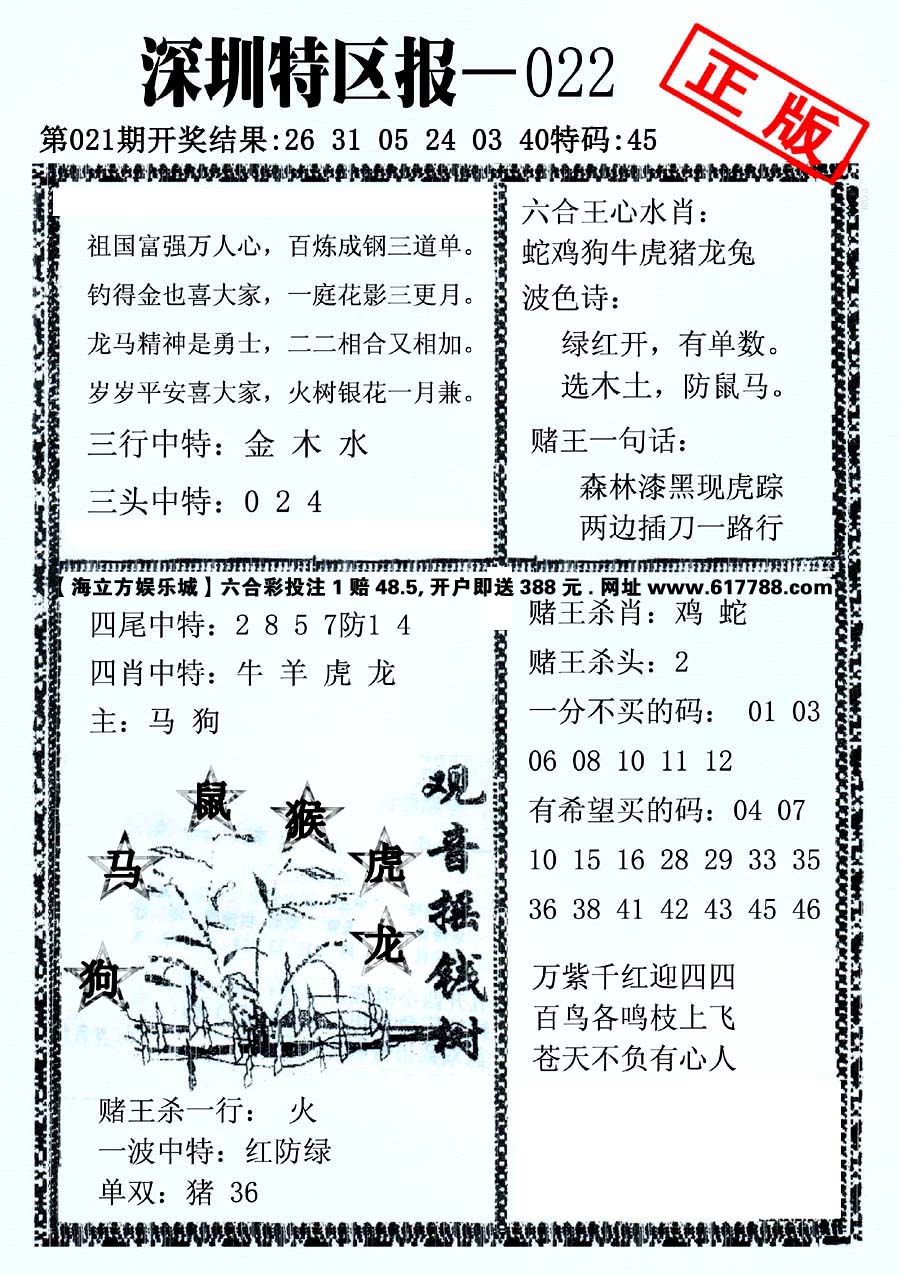 深圳特区报—022
正版
第021期开奖结果:26 31 05 24 03 40特码:45
祖国富强万人心，百炼成钢三道单。
钓得金也喜大家，一庭花影三更月。
龙马精神是勇士，二二相合又相加。
岁岁平安喜大家，火树银花一月兼。
三行中特：金 木 水
三头中特：0 2 4
六合王心水肖：
蛇鸡狗牛虎猪龙兔
波色诗：
绿红开，有单数。
选木土，防鼠马。
赌王一句话：
森林漆黑现虎踪
两边插刀一路行
【海立方娱乐城】六合彩投注1赔48.5,开户即送388元.网址www.617788.com
四尾中特：2 8 5 7防1 4
四肖中特：牛 羊 虎 龙
主：马 狗
鼠
猴
马
虎
龙
狗
观音摇钱树
赌王杀一行： 火
一波中特：红防绿
单双：猪 36
赌王杀肖：鸡 蛇
赌王杀头：2
一分不买的码： 01 03
06 08 10 11 12
有希望买的码：04 07
10 15 16 28 29 33 35
36 38 41 42 43 45 46
万紫千红迎四四
百鸟各鸣枝上飞
苍天不负有心人